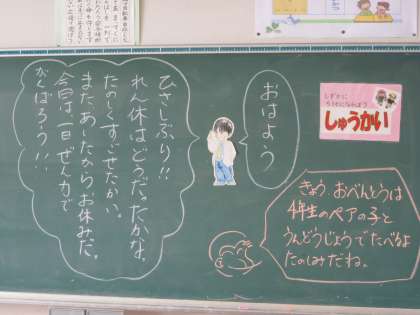 おはよう
ひさしぶり!!
れん休はどうだったかな。
たのしくすごせたかい。
また、あしたからお休みだ。
今日は一日ぜん力で
がんばろう!!
しずかに
しゅうかい
きょう おべんとうは
4年生のペアの子と
うんどうじょうでたべるよ
たのしみだね。